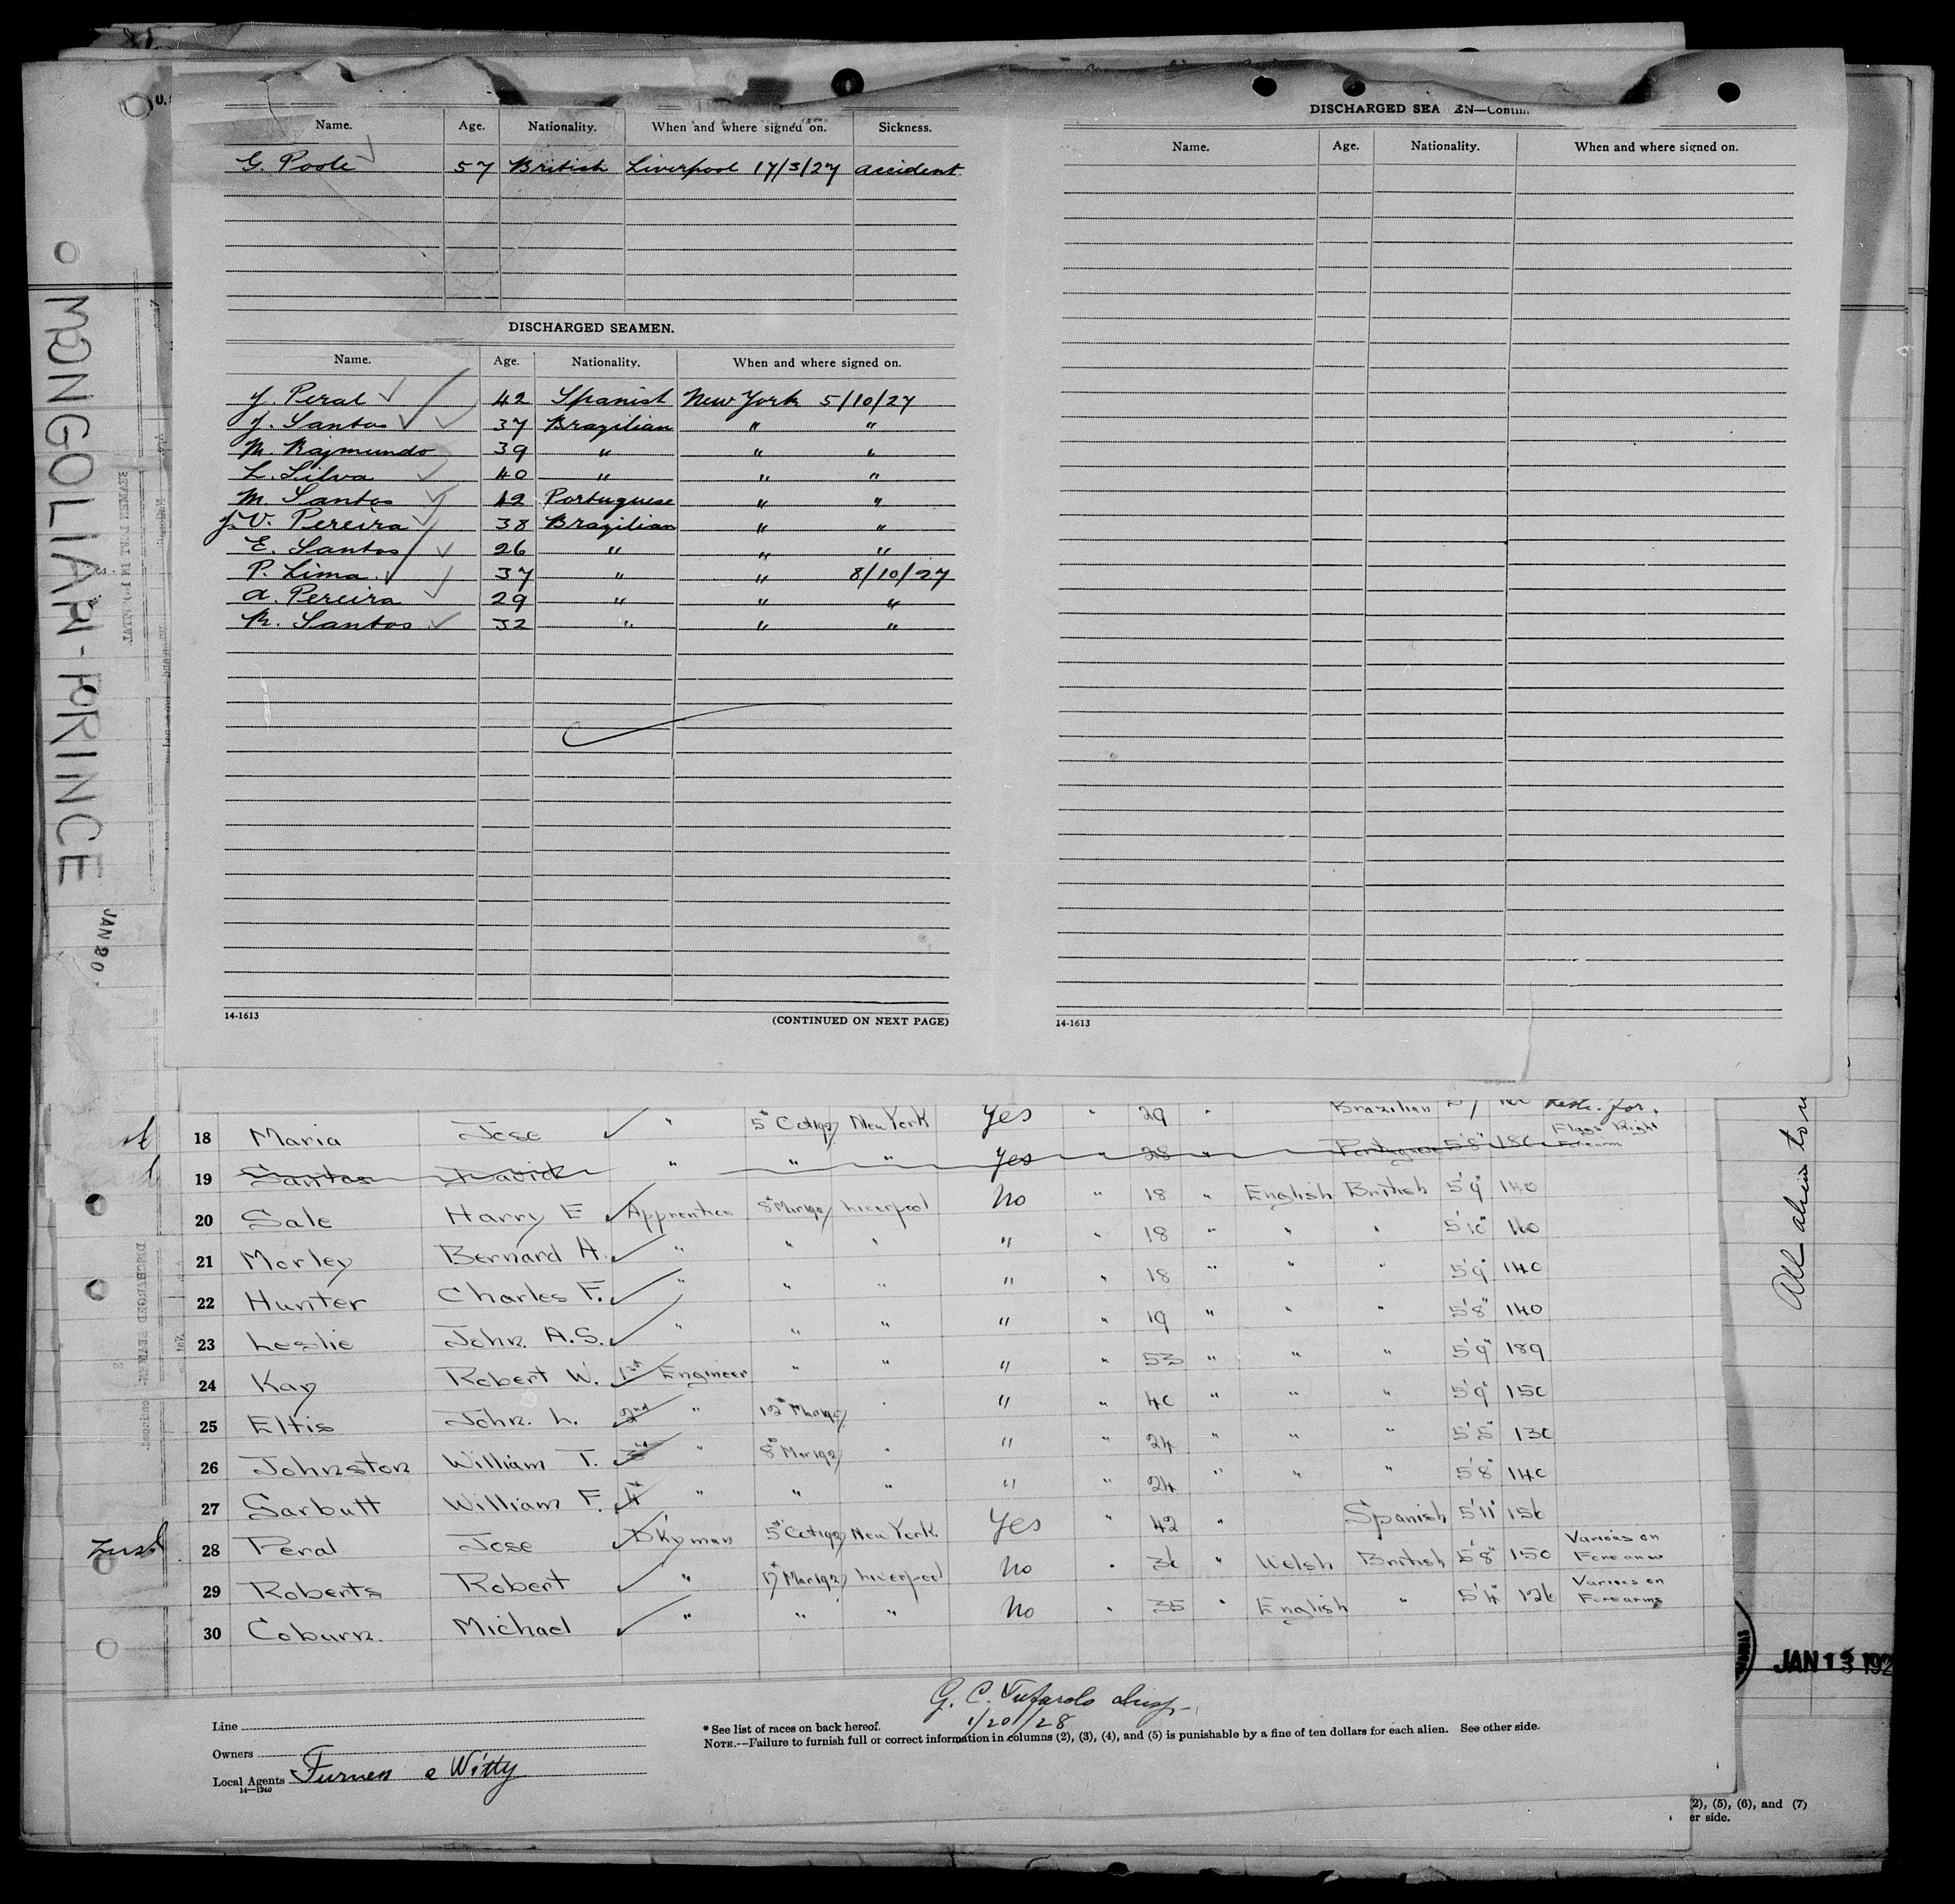 MONGOLIAN-PRINCE
JAN 20
Name. Age. Nationality. When and where signed on. Sickness.
G. Poole 57 British Liverpool 17/3/27 accident
DISCHARGED SEAMEN.
Name. Age. Nationality. When and where signed on.
J. Peral 42 Spanish New York 5/10/27
J. Santos 37 Brazilian " "
M. Rajmundo 39 " " "
L. Silva 40 " " "
M. Santos 42 Portuguese " "
J. V. Pereira 38 Brazilian " "
E. Santos 26 " " "
P. Lima 37 " " 8/10/27
A. Pereira 29 " " "
M. Santos 32 " " "
14-1613 (CONTINUED ON NEXT PAGE)
DISCHARGED SEA EN—Contin
Name. Age. Nationality. When and where signed on.
14-1613
18 Maria Jose " 5" Oct 1927 New York Yes " 29 " Brazilian
19 Santos David " " " Yes " 28 " Portuguese 5'8" 180 Flags Right Forearm
20 Sale Harry E Apprentice 8" Mar 1927 Liverpool No " 18 " English British 5'9" 140
21 Morley Bernard A. " " " " " 18 " " " 5'10" 160
22 Hunter Charles F. " " " " " 18 " " " 5'9" 140
23 Leslie John A.S. " " " " " 19 " " " 5'8" 140
24 Kay Robert W. 1st Engineer " " " " 53 " " " 5'9" 189
25 Eltis John L. 2nd " 12" Mar 1927 " " " 40 " " " 5'9" 150
26 Johnston William T. 3rd " 8" Mar 1927 " " " 24 " " " 5'5" 130
27 Garbutt William F. 4th " " " " " 24 " " " 5'8" 140
28 Peral Jose Dkyman 5" Oct 1927 New York Yes " 42 " Spanish 5'11" 156
29 Roberts Robert " 17" Mar 1927 Liverpool No " 36 " Welsh British 5'8" 150 Various on Forearms
30 Coburn. Michael " " " No " 35 " English " 5'4" 126 Various on Forearms
All aliens to
JAN 13 192
G. C. Tufarolo Insp.
1/20/28
Line
Owners
Local Agents Furness & Withy
14—1240
* See list of races on back hereof.
NOTE.—Failure to furnish full or correct information in columns (2), (3), (4), and (5) is punishable by a fine of ten dollars for each alien. See other side.
(2), (5), (6), and (7)
er side.